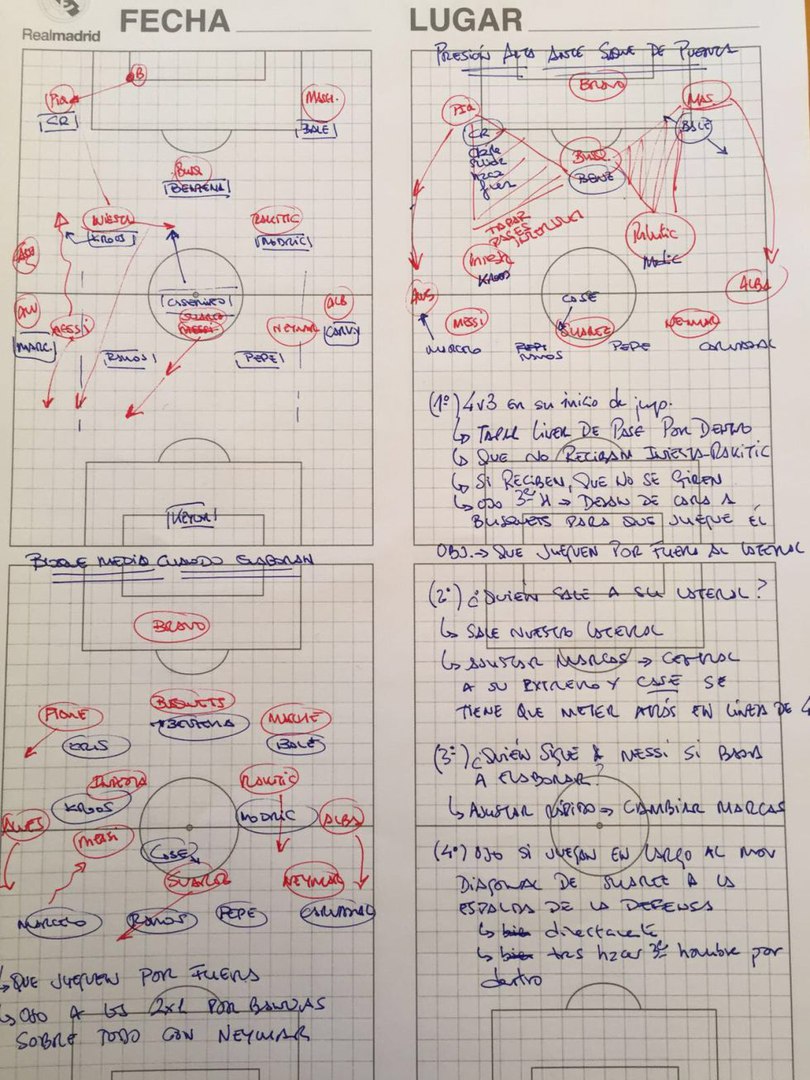 Realmadrid
FECHA
LUGAR
B
Piq
CR
MASH.
BALE
Busq
BENZEMA
INIESTA
KROOS
RAKITIC
MODRIC
CASEMIRO
SUAREZ
MESSI
MARC.
NEYMAR
ALB
CARVJ
RAMOS
PEPE
KEYLOR
PRESIÓN ALTA ANTE SAQUE DE PUERTA
BRAVO
PIQ
MAS.
CR
BALE
BUSQ.
BENZ
TAPAR
PASES
INTERIORES
INIESTA
KROOS
RAKITIC
ALVES
ALBA
CASE
MESSI
SUAREZ
NEYMAR
MARCELO
RAMOS
PEPE
CARVAJAL
(1º) 4v3 en su inicio de juego.
↳ TAPAR LINEA DE PASE POR DENTRO
↳ QUE NO RECIBAN INIESTA-RAKITIC
↳ SI RECIBEN, QUE NO SE GIREN
↳ OJO 3er H → DEJAN DE CARA A
BUSQUETS PARA QUE JUEGUE ÉL
OBJ. → QUE JUEGUEN POR FUERA AL LATERAL
(2º) ¿QUIÉN SALE A SU LATERAL?
↳ SALE NUESTRO LATERAL
↳ AJUSTAR MARCAS → CENTRAL
A SU EXTREMO Y CASE SE
TIENE QUE METER ATRÁS EN LÍNEA DE 4
(3º) ¿QUIÉN SIGUE A MESSI SI BAJA
A ELABORAR?
↳ AJUSTAR RÁPIDO → CAMBIAR MARCAS
(4º) OJO SI JUEGAN EN LARGO AL MOV
DIAGONAL DE SUAREZ A LA
ESPALDA DE LA DEFENSA
↳ bien directamente
↳ bien tras hzar 3er hombre por
dentro
BLOQUE MEDIO CUANDO ELABORAN
BRAVO
PIQUE
CRIS
BUSQUETS
BENZEMA
MASCHE
BALE
INIESTA
KROOS
RAKITIC
MODRIC
ALVES
ALBA
MESSI
CASE
SUAREZ
NEYMAR
MARCELO
RAMOS
PEPE
CARVAJAL
↳ QUE JUEGUEN POR FUERA
↳ OJO A LOS 2x1 POR BANDAS
SOBRE TODO CON NEYMAR